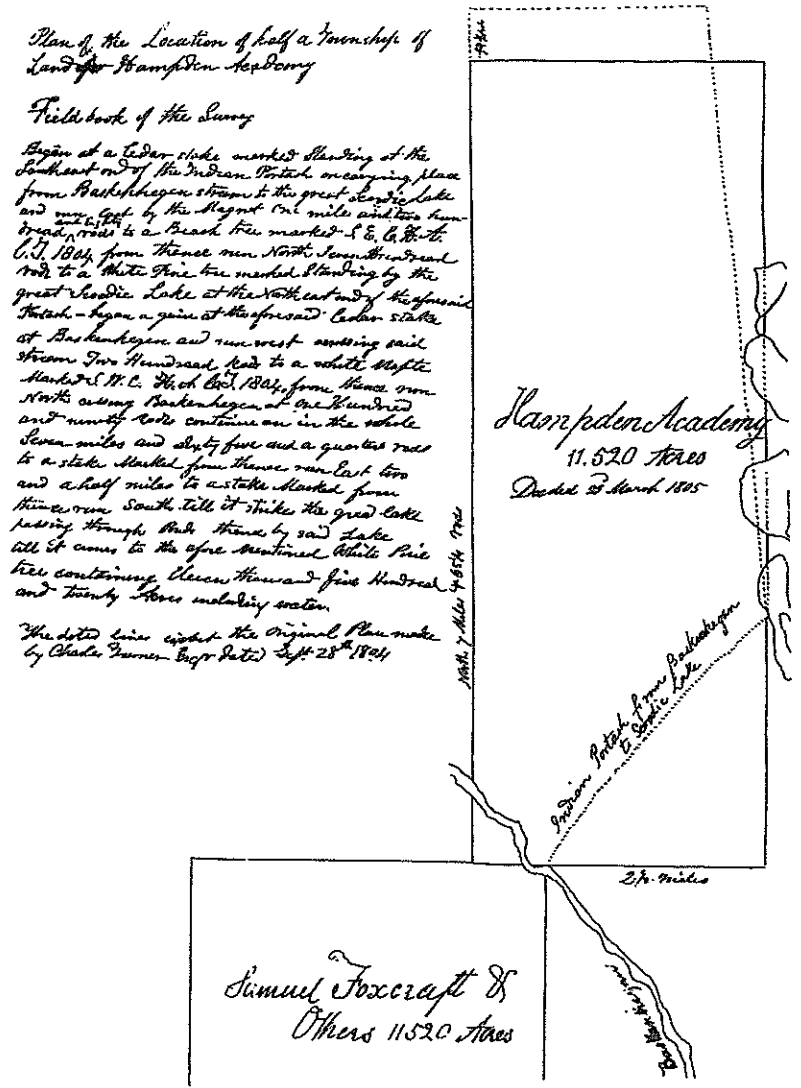 Plan of the Location of half a Township of
Land for Hampden Academy
Fieldbook of the Survey
Began at a Cedar stake marked Standing at the
Southeast end of the Indian Portach or carying place
from Baskenhegen stream to the great Scoodic Lake
and run East by the Magnet One mile and two hun-
dread and Eighty rods to a Beach tree marked S.E.C.H.A.
C.T. 1804 from thence run North Seven Hundread
rods to a White Pine tree marked Standing by the
great Scoodic Lake at the Northeast end of the aforesaid
Portach - began a gain at the aforesaid Cedar stake
at Baskenhegen and run west crossing said
stream Two Hundread Rods to a white Maple
Marked S.W.C. H.A. C.T. 1804, from thence run
North crossing Baskenhegen at One Hundred
and ninety Rods continue on in the whole
Seven miles and sixty five and a quarter rods
to a stake Marked from thence run East two
and a half miles to a stake Marked from
thence run South till it strike the great lake
passing through thence by said Lake
till it comes to the afore mentioned White Pine
tree containing Eleven thousand five Hundread
and twenty Acres including water.
The doted lines the Original Plan made
by Charles Turner Esqr dated Sept. 28th 1804
Hampden Academy
11.520 Acres
Deeded March 1805
North 7 Miles & 65¼ rods
Indian Portach from Baskenhegen
to Scoodic Lake
2½ miles
Samuel Foxcraft &
Others 11520 Acres
Baskenhegen